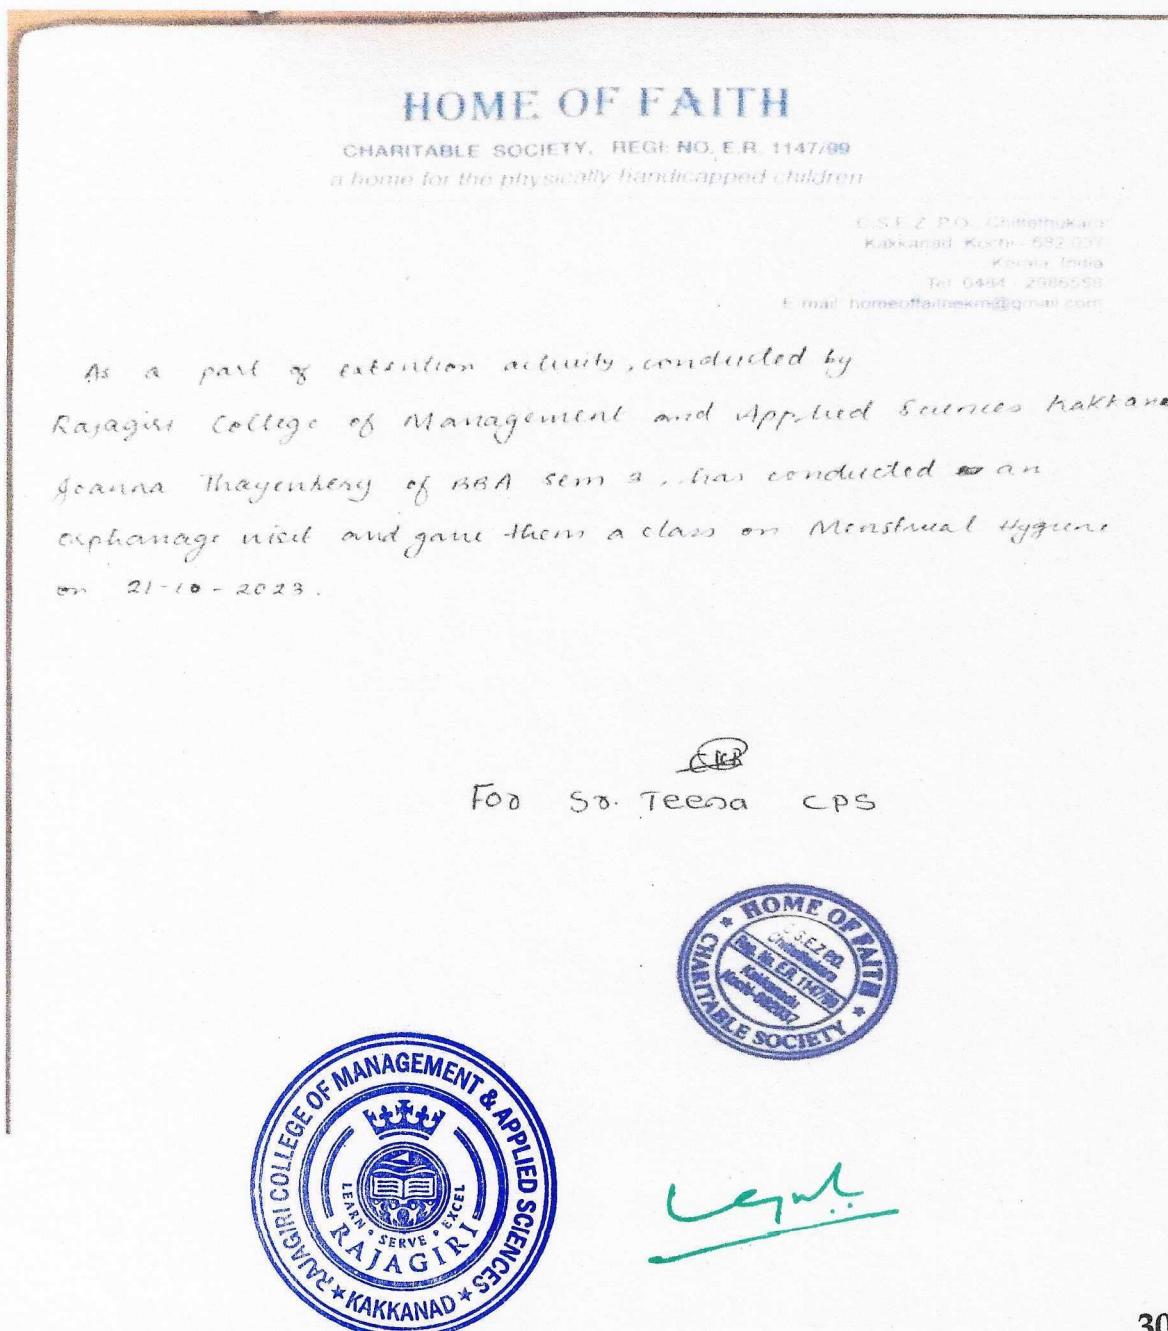 HOME OF FAITH
CHARITABLE SOCIETY, REGI: NO. E.R. 1147/99
a home for the physically handicapped children
C.S.E.Z P.O., Chittethukara
Kakkanad, Kochi - 682 037
Kerala, India
Tel: 0484 - 2986558
E mail: homeoffaithekm@gmail.com
As a part of extention activity, conducted by
Rajagiri College of Management and Applied Sciences Kakkana
Joanna of BBA Sem 3, has conducted an
orphanage visit and gave them a class on Menstrual Hygiene
on 21-10-2023.
For Sr. Teena CPS
HOME OF FAITH
CHARITABLE SOCIETY
C.S.E.Z P.O.
Chittethukara
Reg. No. E.R. 1147/99
Kakkanadu
Kochi-682037
RAJAGIRI COLLEGE OF MANAGEMENT & APPLIED SCIENCES
KAKKANAD
LEARN • SERVE • EXCEL
RAJAGIRI
30